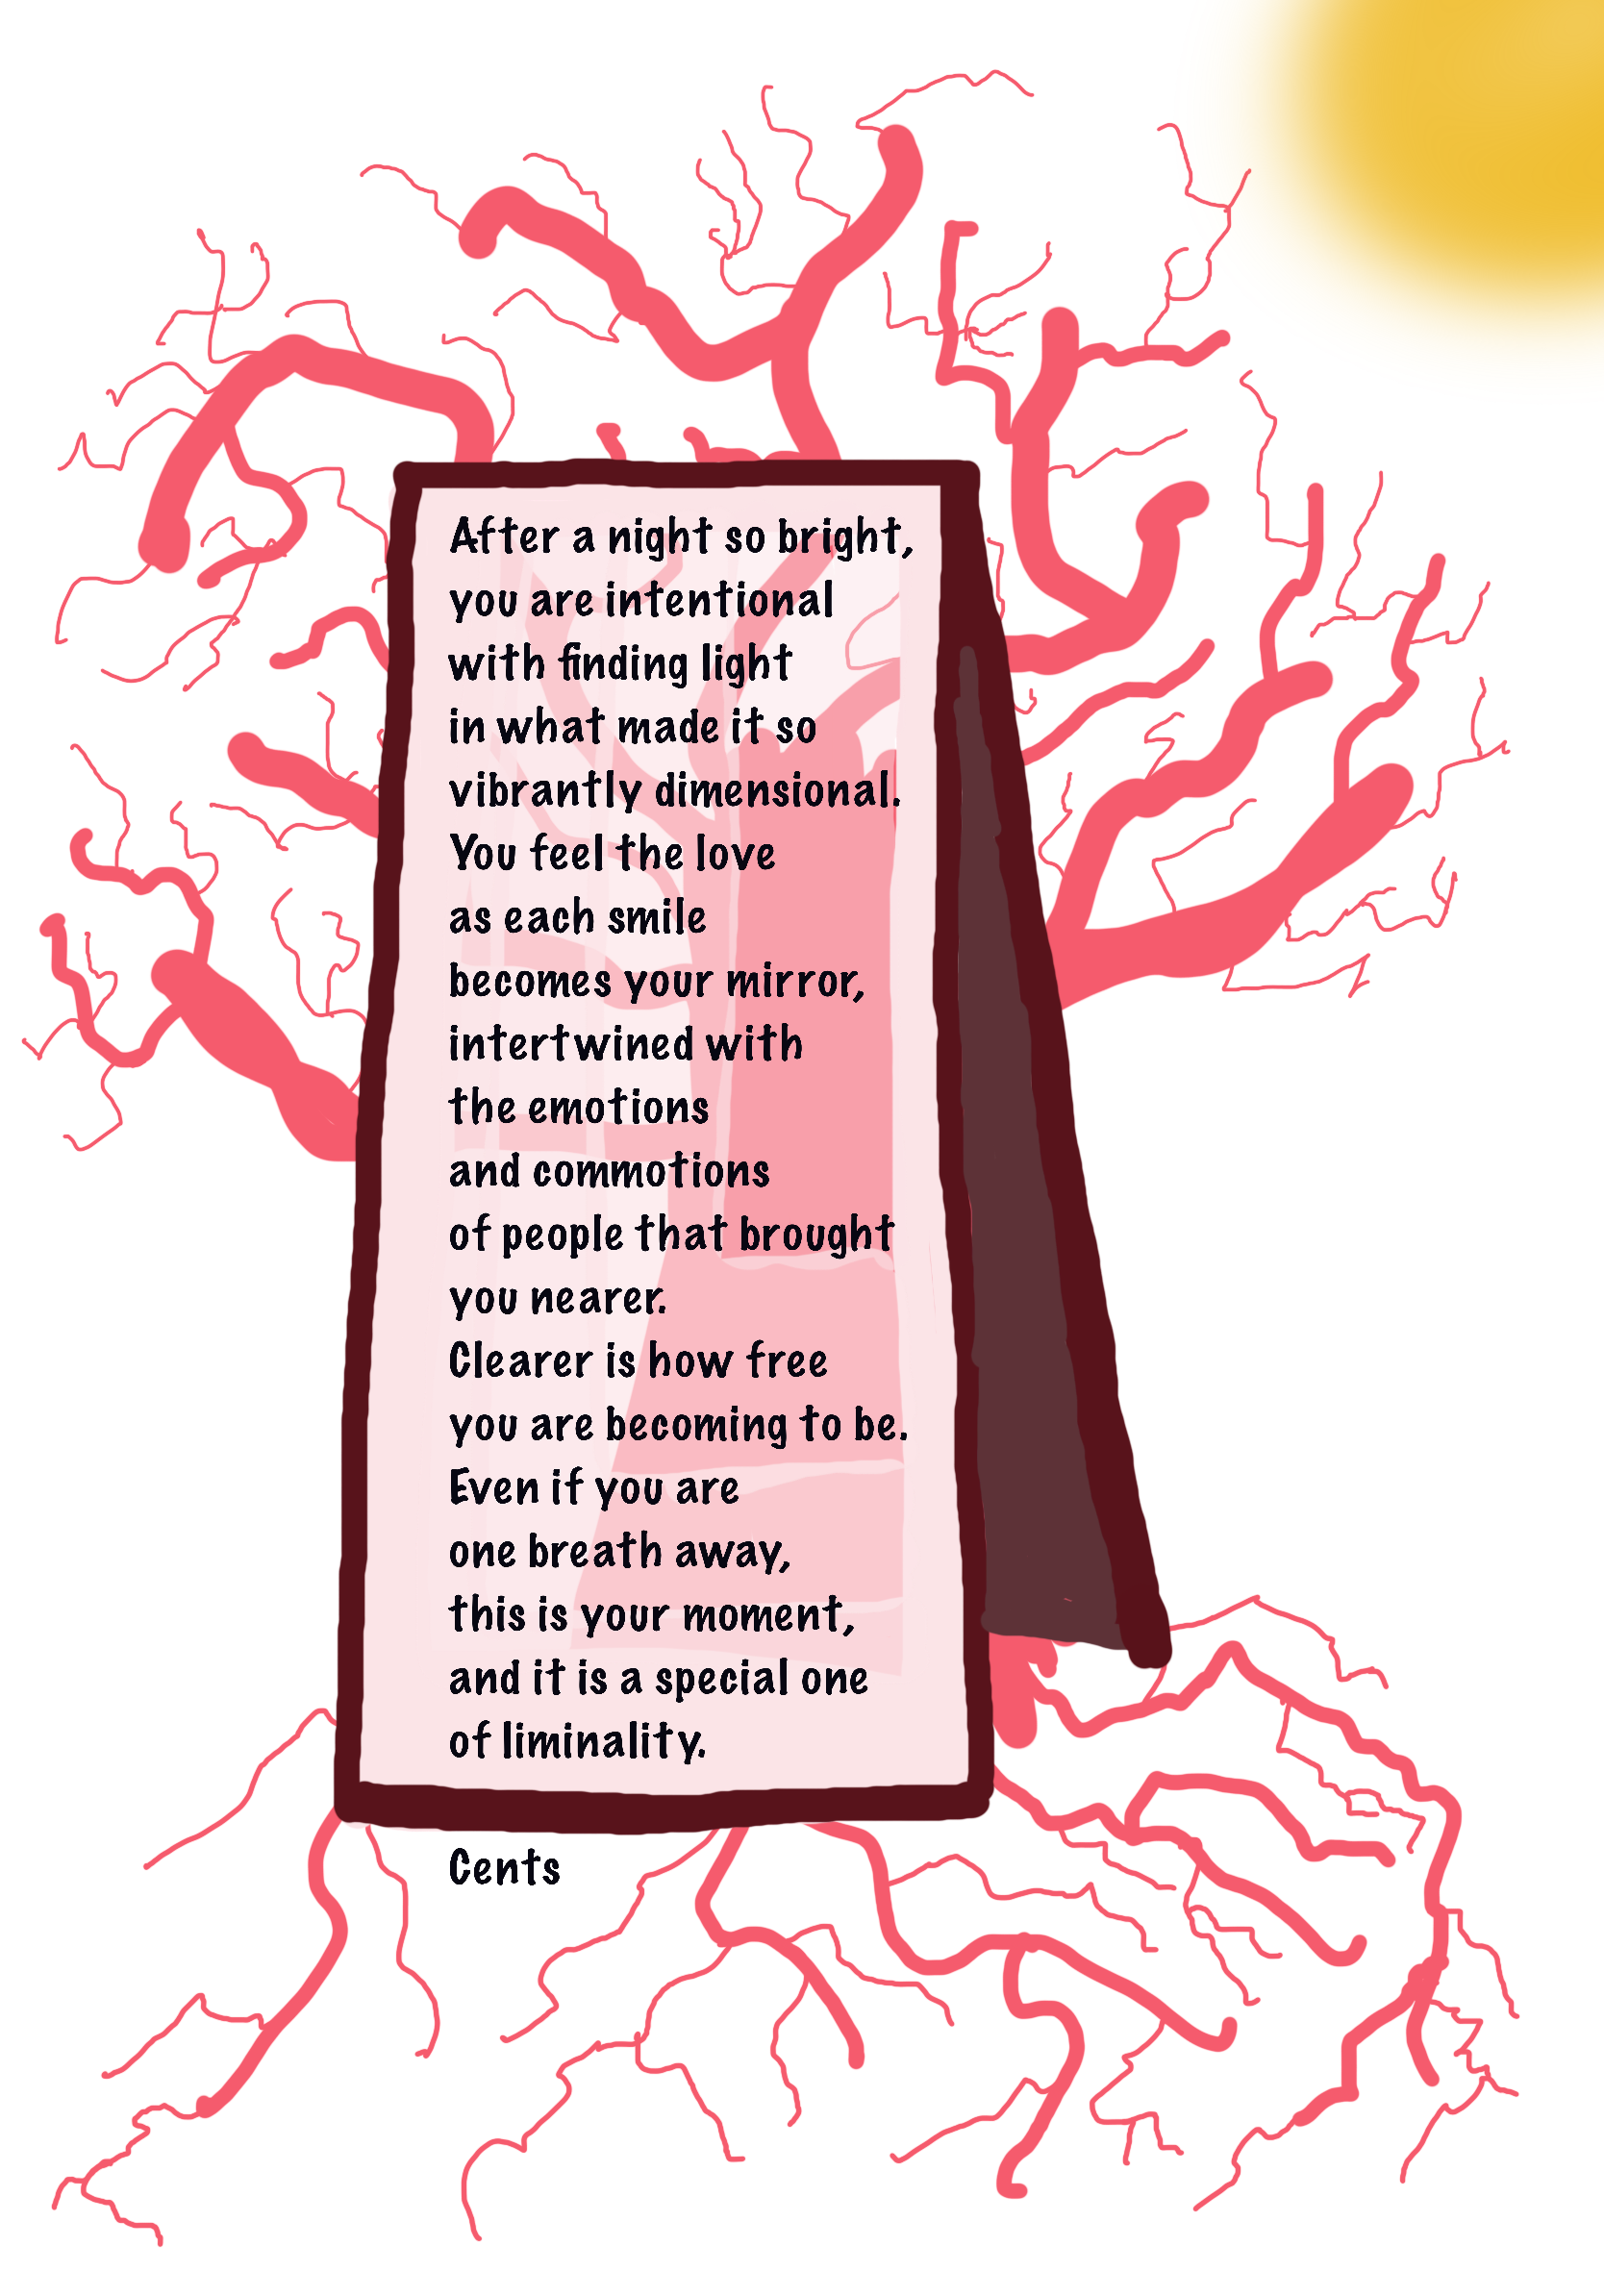 After a night so bright,
you are intentional
with finding light
in what made it so
vibrantly dimensional.
You feel the love
as each smile
becomes your mirror,
intertwined with
the emotions
and commotions
of people that brought
you nearer.
Clearer is how free
you are becoming to be.
Even if you are
one breath away,
this is your moment,
and it is a special one
of liminality.
Cents